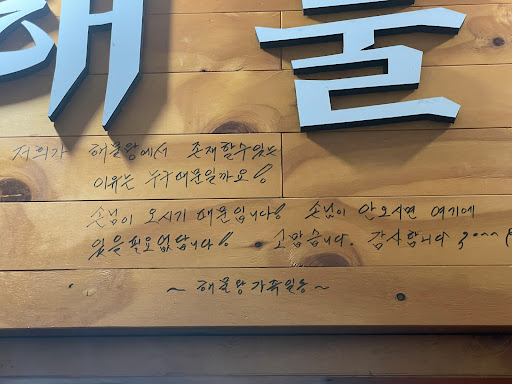 해물
저희가 해물왕에서 존재할수있는
이유는 누구때문일까요!
손님이 오시기 때문입니다! 손님이 안오시면 여기에
있을필요없답니다! 고맙습니다. 감사합니다
~ 해물왕가족일동 ~